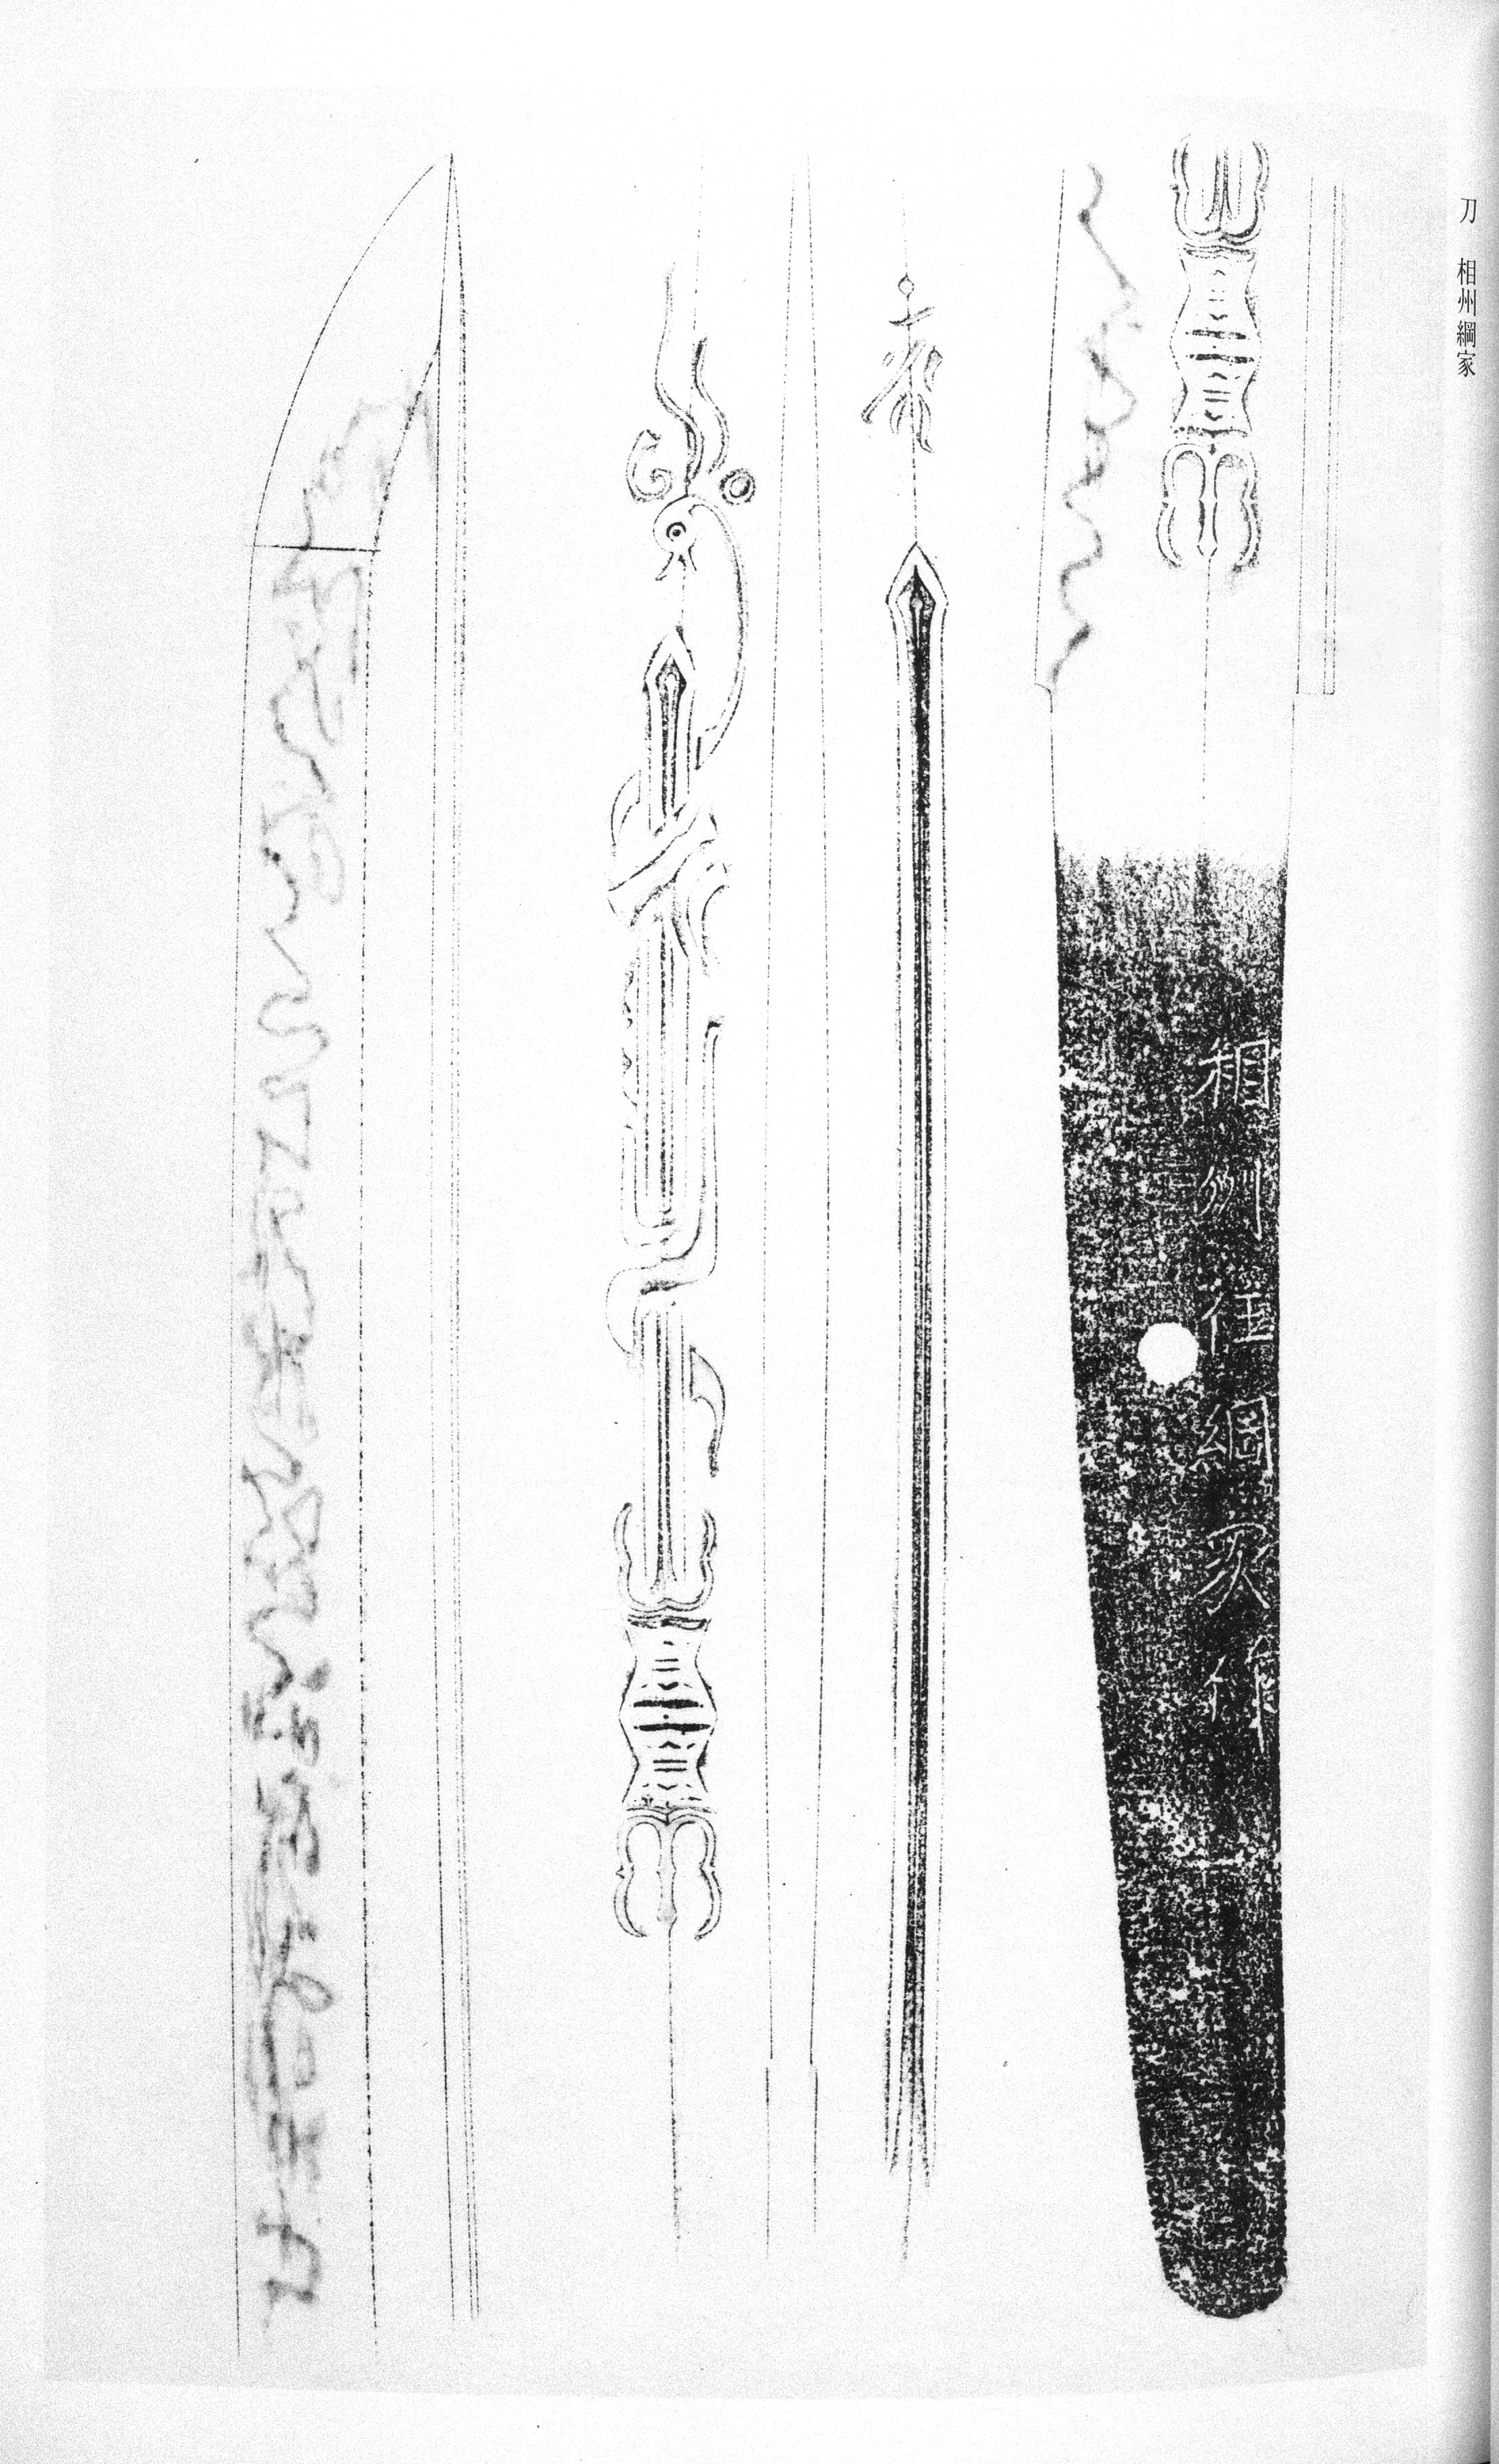 刀 相州綱家
相州住綱家作